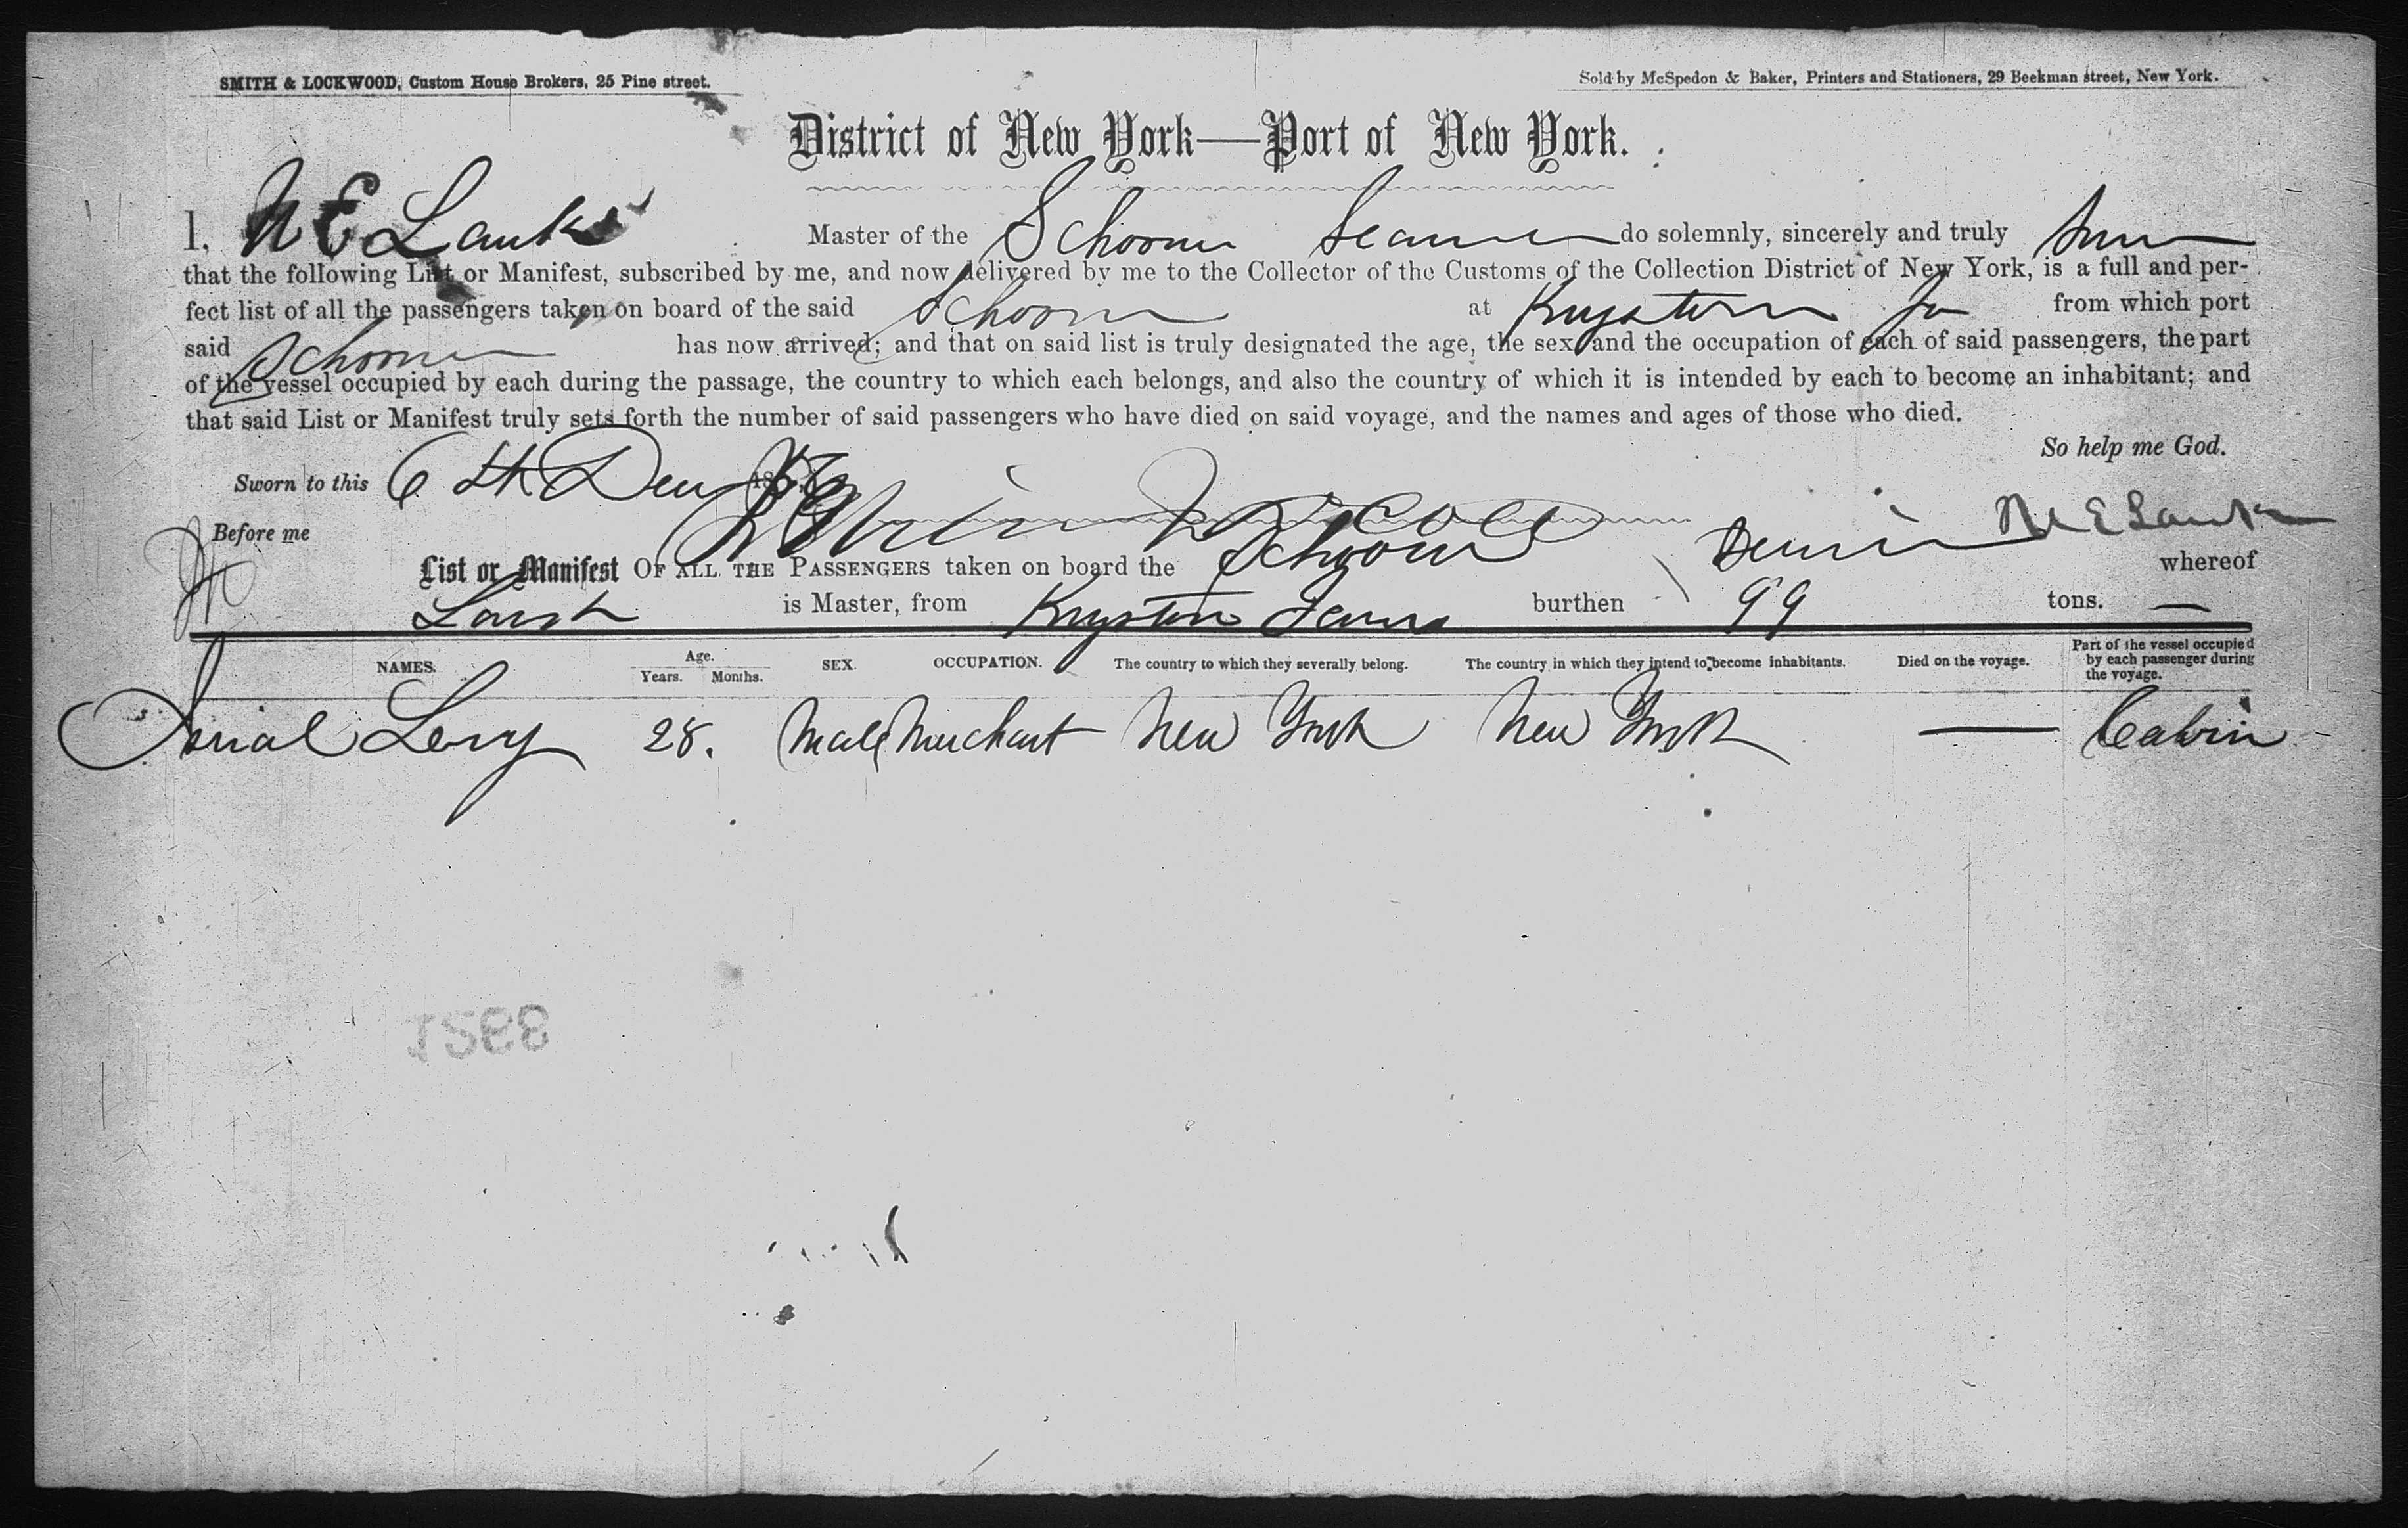 SMITH & LOCKWOOD, Custom House Brokers, 25 Pine street.
Sold by McSpedon & Baker, Printers and Stationers, 29 Beekman street, New York.
District of New York—Port of New York.
I, Master of the Schooner do solemnly, sincerely and truly
that the following List or Manifest, subscribed by me, and now delivered by me to the Collector of the Customs of the Collection District of New York, is a full and per-
fect list of all the passengers taken on board of the said Schooner at from which port
said Schooner has now arrived; and that on said list is truly designated the age, the sex and the occupation of each of said passengers, the part
of the vessel occupied by each during the passage, the country to which each belongs, and also the country of which it is intended by each to become an inhabitant; and
that said List or Manifest truly sets forth the number of said passengers who have died on said voyage, and the names and ages of those who died.
So help me God.
Sworn to this 6th
Before me
List or Manifest OF ALL THE PASSENGERS taken on board the Schooner whereof
is Master, from burthen 99 tons. —
NAMES. Age. Years. Months. SEX. OCCUPATION. The country to which they severally belong. The country in which they intend to become inhabitants. Died on the voyage. Part of the vessel occupied by each passenger during the voyage.
Levy 28. Male Merchant New York New York — Cabin
3321